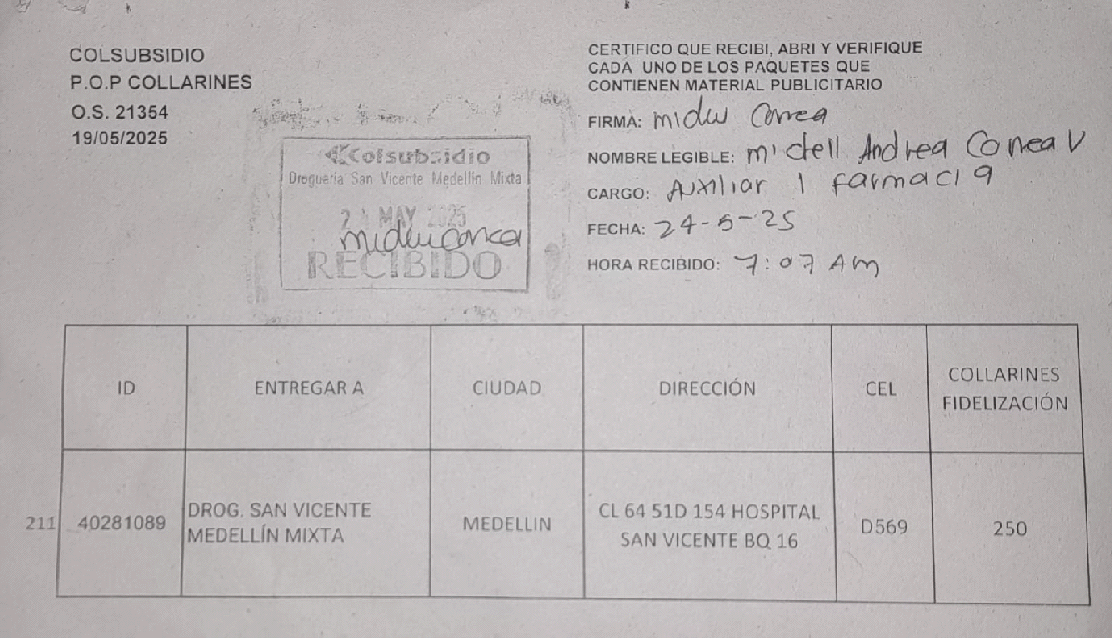 COLSUBSIDIO
P.O.P COLLARINES
O.S. 21354
19/05/2025
CERTIFICO QUE RECIBI, ABRI Y VERIFIQUE
CADA UNO DE LOS PAQUETES QUE
CONTIENEN MATERIAL PUBLICITARIO
FIRMA: Correa
NOMBRE LEGIBLE: Andrea Correa V
CARGO: Auxiliar 1 farmacia
FECHA: 24-5-25
HORA RECIBIDO: 7:07 Am
Colsubsidio
Droguería San Vicente Medellín Mixta
MAY 2025
RECIBIDO
ID ENTREGAR A CIUDAD DIRECCIÓN CEL COLLARINES FIDELIZACIÓN
211 40281089 DROG. SAN VICENTE MEDELLÍN MIXTA MEDELLIN CL 64 51D 154 HOSPITAL SAN VICENTE BQ 16 D569 250